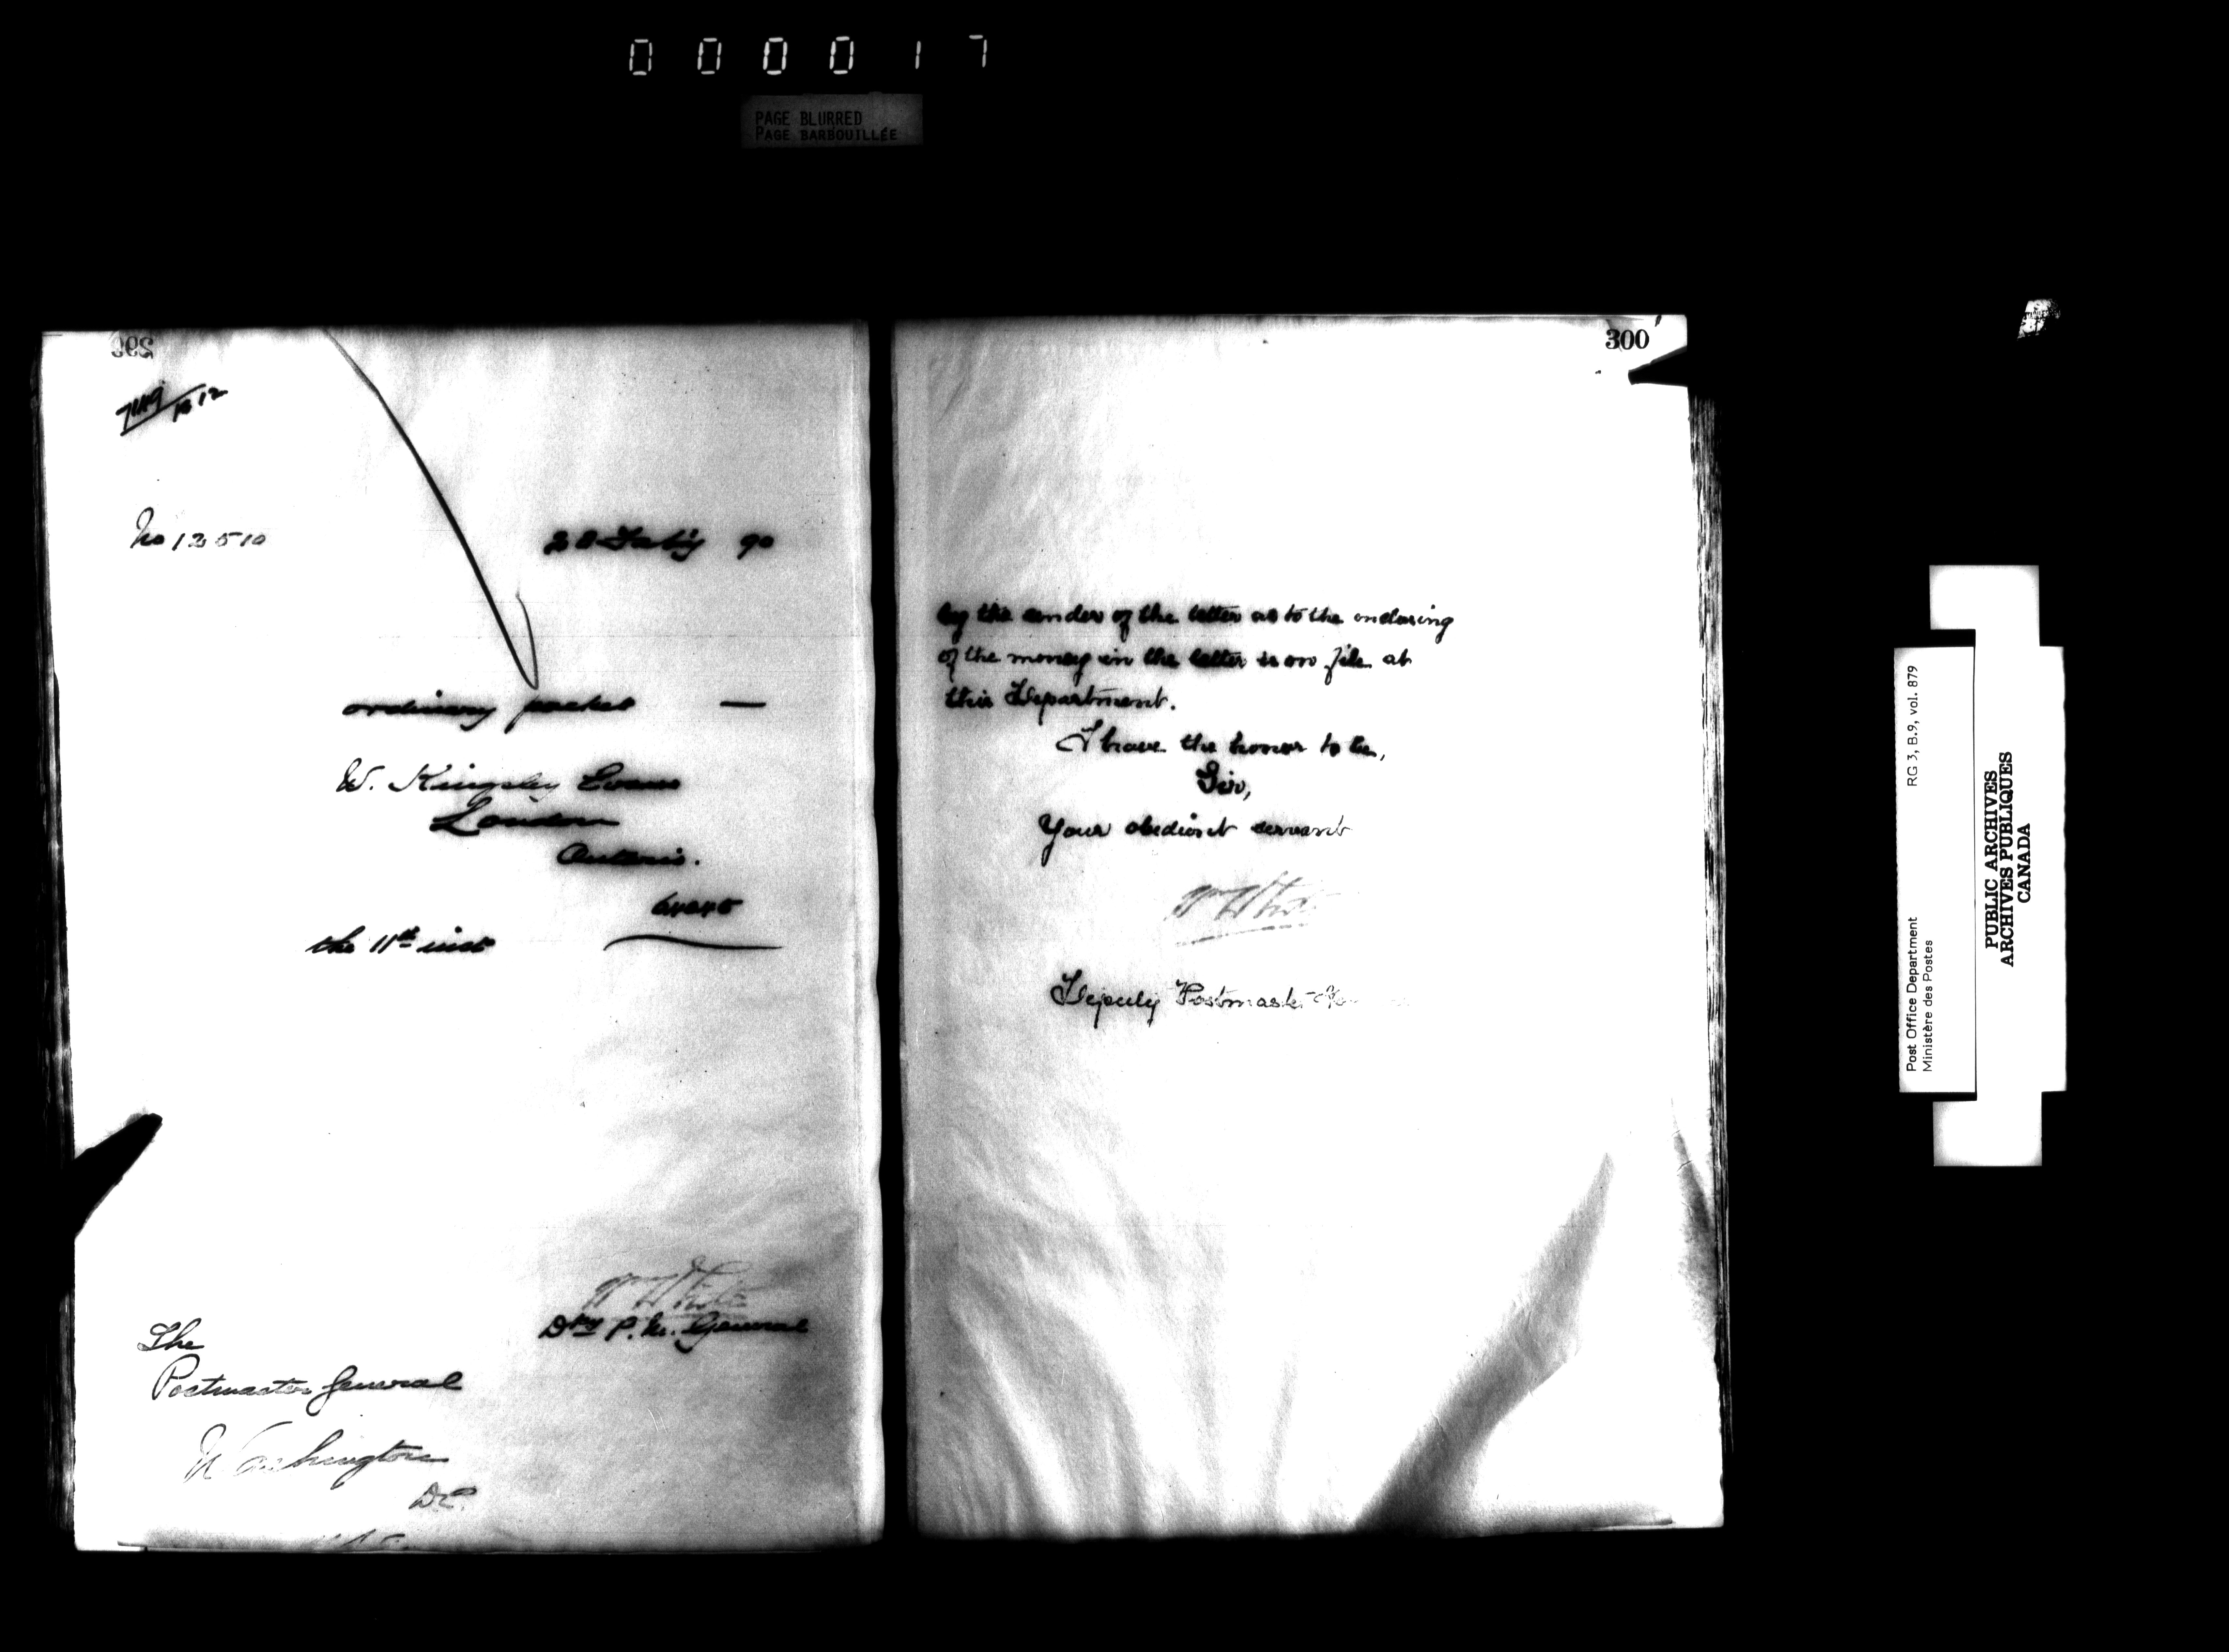 000017
PAGE BLURRED
PAGE BARBOUILLÉE
299
No 12510
90
ordinary packet —
W. Kingsley Evans
London
Ontario.
the 11th inst
Wm White
Dpy P. M. General
The
Postmaster General
Washington
DC.
300
by the sender of the letter as to the enclosing
of the money in the letter is on file at
this Department.
I have the honor to be,
Sir,
Your obedient servant
Wm White
Deputy Postmaster
Post Office Department
Ministère des Postes
RG 3, B.9, vol. 879
PUBLIC ARCHIVES
ARCHIVES PUBLIQUES
CANADA